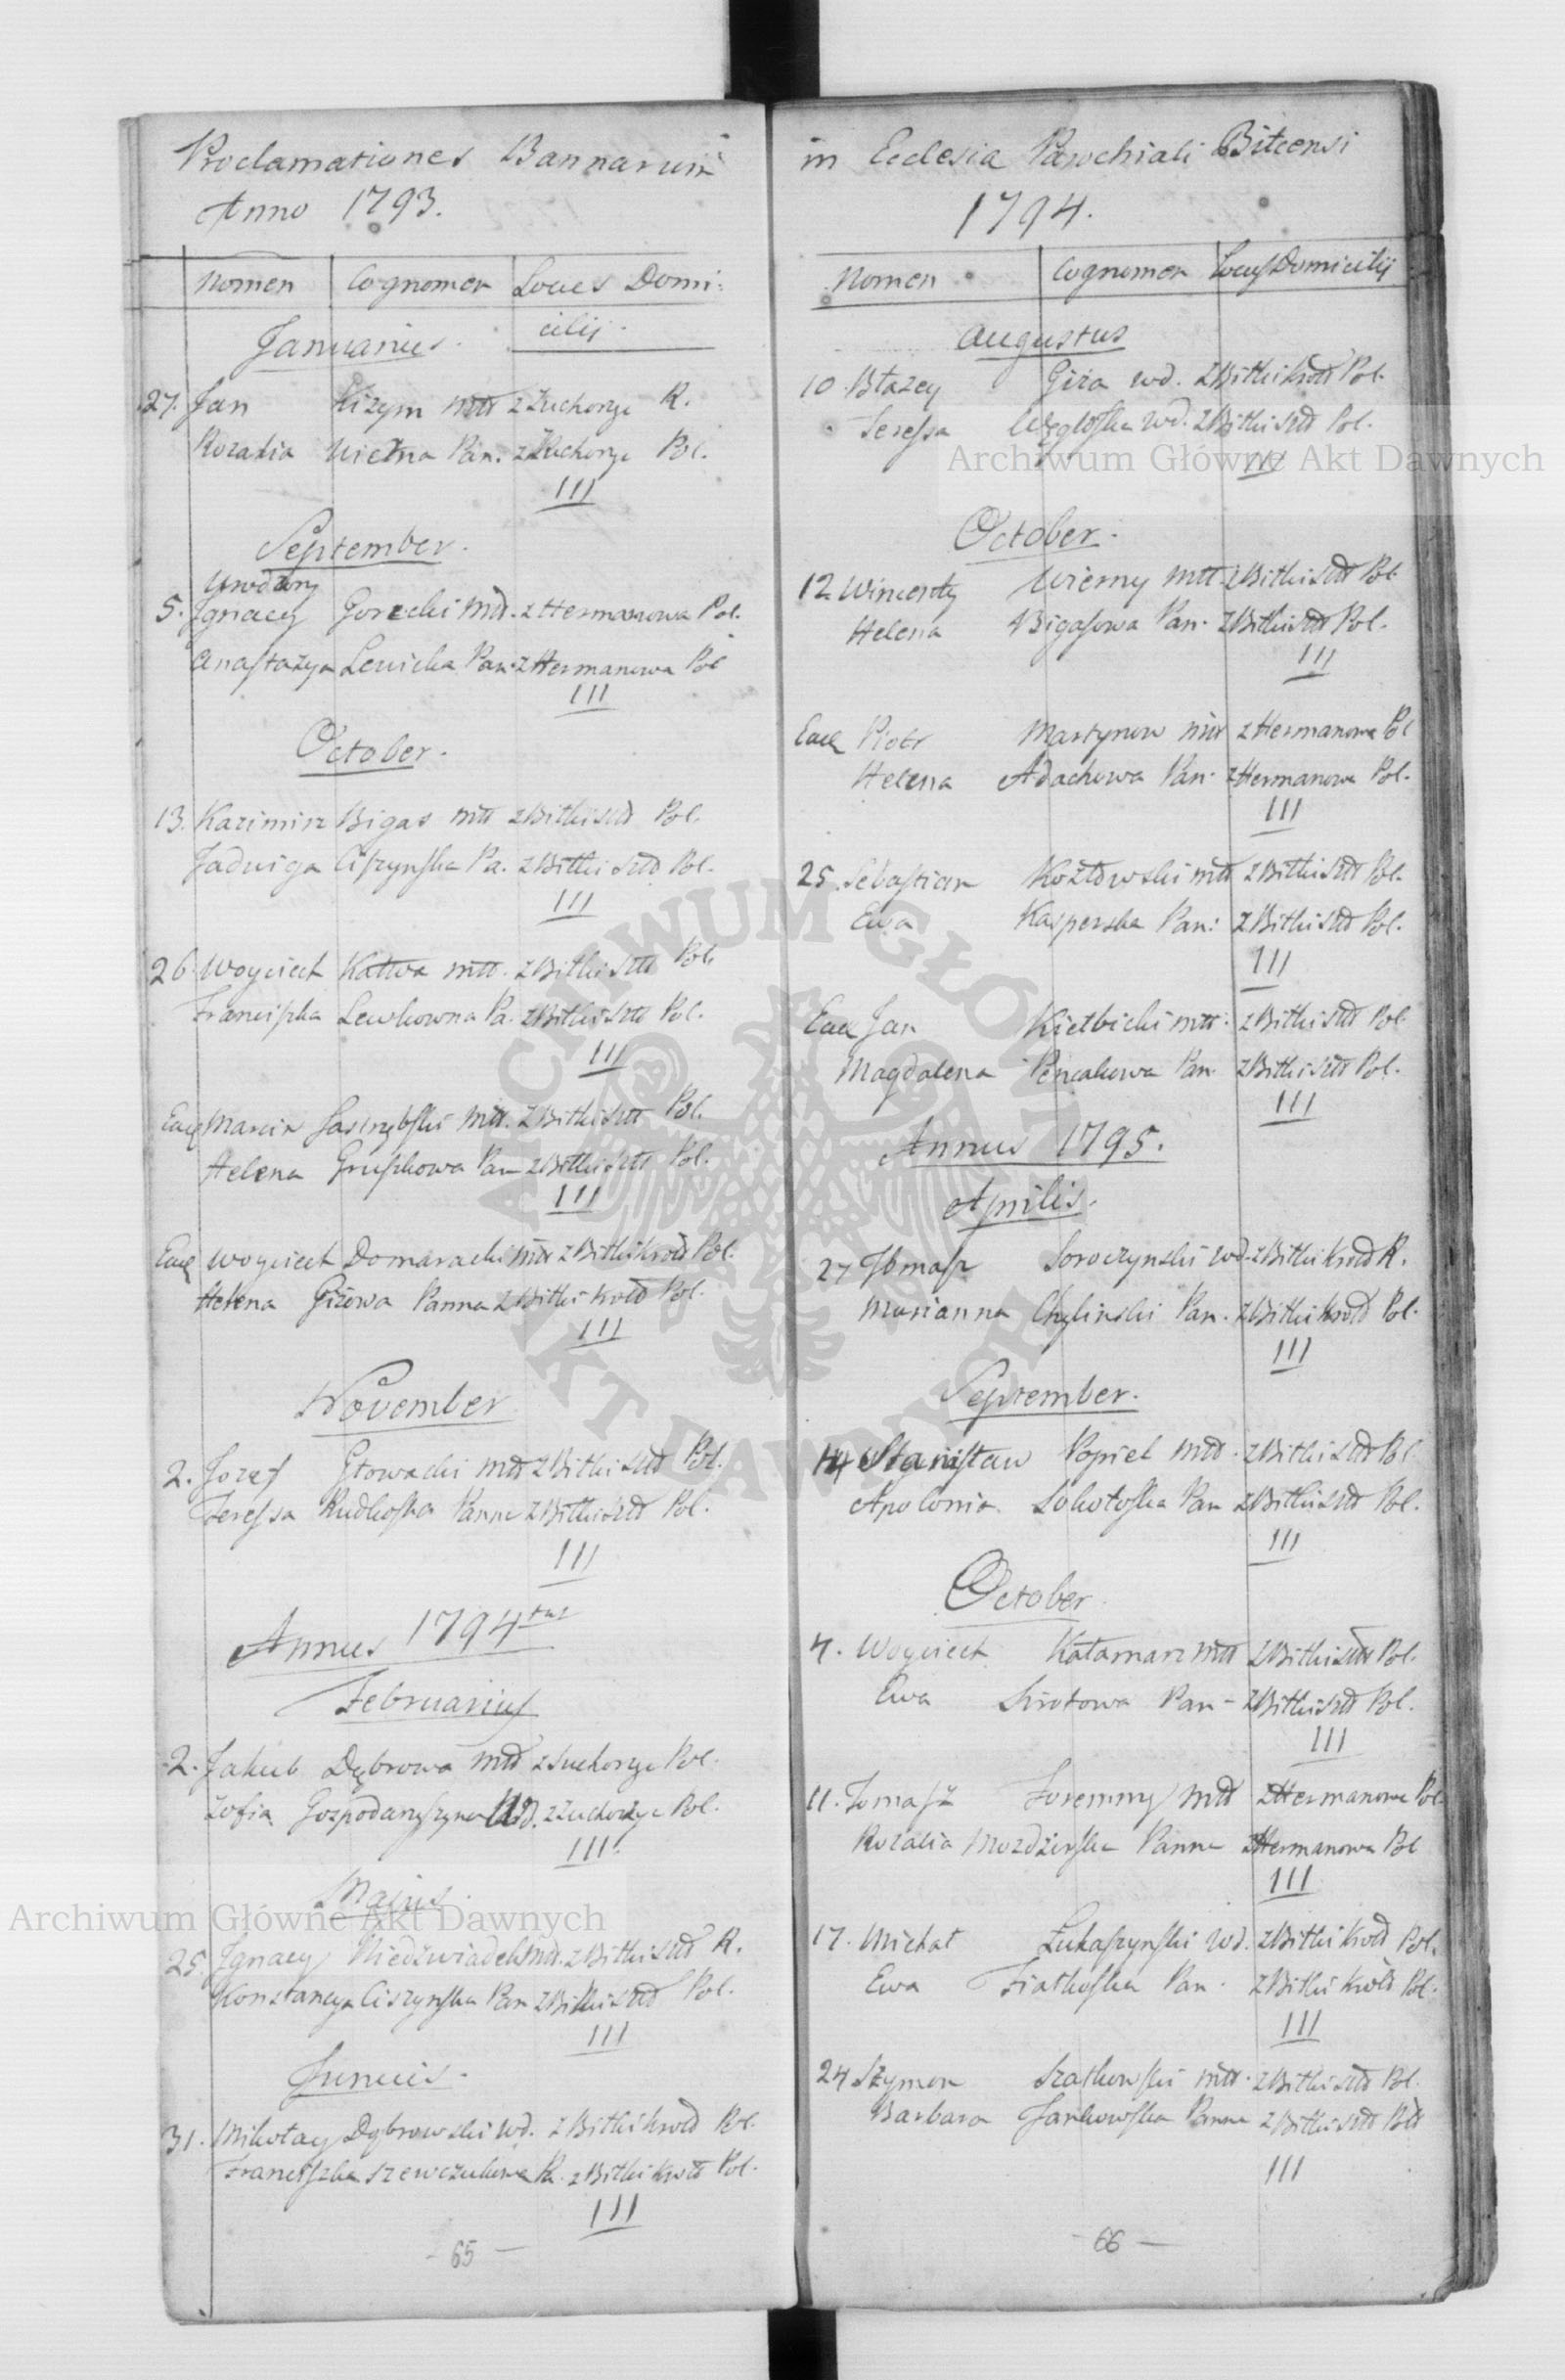 Proclamationes Bannarum
Anno 1793.
Nomen Cognomen Locus Domi:
cilij.
Januarius.
27. Jan Kizym mtt z Zuchorzyc R.
Rozalia Wietna Pan. z Zuchorzyc Pol.
III
September.
Urodzony
5. Jgnacy Gorecki Mtd. z Hermanowa Pol.
Anastazya Lewicka Pan. z Hermanowa Pol
III
October.
13. Kazimirz Bigas mtt z Bitki szld Pol.
Jadwiga Ciszynska Pa. z Bitki szld Pol.
III
26 Woyciech Kattwa mtt. z Bitki szld Pol.
Franciszka Lewkowna Pa. z Bitki szld Pol.
III
Ead Marcin Jastrzębski mtt. z Bitki szld Pol.
Helena Gruszkowa Pan z Bitki szld Pol.
III
Ead Woyciech Domaracki mtt z Bitki krold Pol.
Helena Giżowa Panna z Bitki krold Pol.
III
November
2. Jozef Głowacki mtt z Bitki szld Pol.
Teressa Rudkoska Panna z Bitki szld Pol.
III
Annus 1794tus
Februarius
2. Jakub Dąbrowa mtt z Suchorzyc Pol.
Zofia Gospodarszyna Wd. z Zuchorzyc Pol.
III.
Majus.
25 Jgnacy Niedzwiadek Mtd. z Bitki szld R.
Konstancya Ciszynska Pan z Bitki szld Pol.
III
Junius.
31. Mikołay Dąbrowski Wd. z Bitki krold Pol.
Franciszka Szewczukowa Pa. z Bitki krold Pol.
III
- 65 -
in Ecclesia Parochiali Bitcensi
1794.
Nomen Cognomen Locus Domicilij
Augustus
10. Błazey Giża wd. z Bitki krold Pol.
Teressa Węgloska wd. z Bitki szld Pol.
III
October.
12 Wincenty Wierny mtt. z Bitki szld Pol.
Helena Bigasowa Pan. z Bitki szld Pol.
III
Ead Piotr Martynow mtt z Hermanowa Pol
Helena Adachowa Pan. z Hermanowa Pol.
III
25. Sebastian Kozłowski mtt z Bitki szld Pol.
Ewa Kasperska Pan: z Bitki szld Pol.
III
Ead Jan Kiełbicki mtt. z Bitki szld Pol
Magdalena Pencakowa Pan. z Bitki szld Pol.
III
Annus 1795.
Aprilis.
27 Thomasz Soroczynski wd. z Bitki krold R.
Marianna Chylinski Pan. z Bitki krold Pol.
III
September.
14 Stanisław Popiel mtt. z Bitki szld Pol
Apolonia Sokołoska Pan z Bitki szld Pol.
III
October.
4. Woyciech Kałamarz mtt z Bitki szld Pol.
Ewa Sirotowa Pan - z Bitki szld Pol.
III
11. Tomasz Foremny mtt z Hermanowa Pol.
Rozalia Mozdzinska Panna z Hermanowa Pol
III
17. Michał Łukaszynski Wd. z Bitki krold Pol.
Ewa Fiałkoska Pan. z Bitki krold Pol.
III
24 Szymon Szatkowski mtt. z Bitki szld Pol.
Barbara Jankowska Panna z Bitki szld Pol
III
- 66 -
Archiwum Główne Akt Dawnych
ARCHIWUM GŁÓWNE AKT DAWNYCH
Archiwum Główne Akt Dawnych